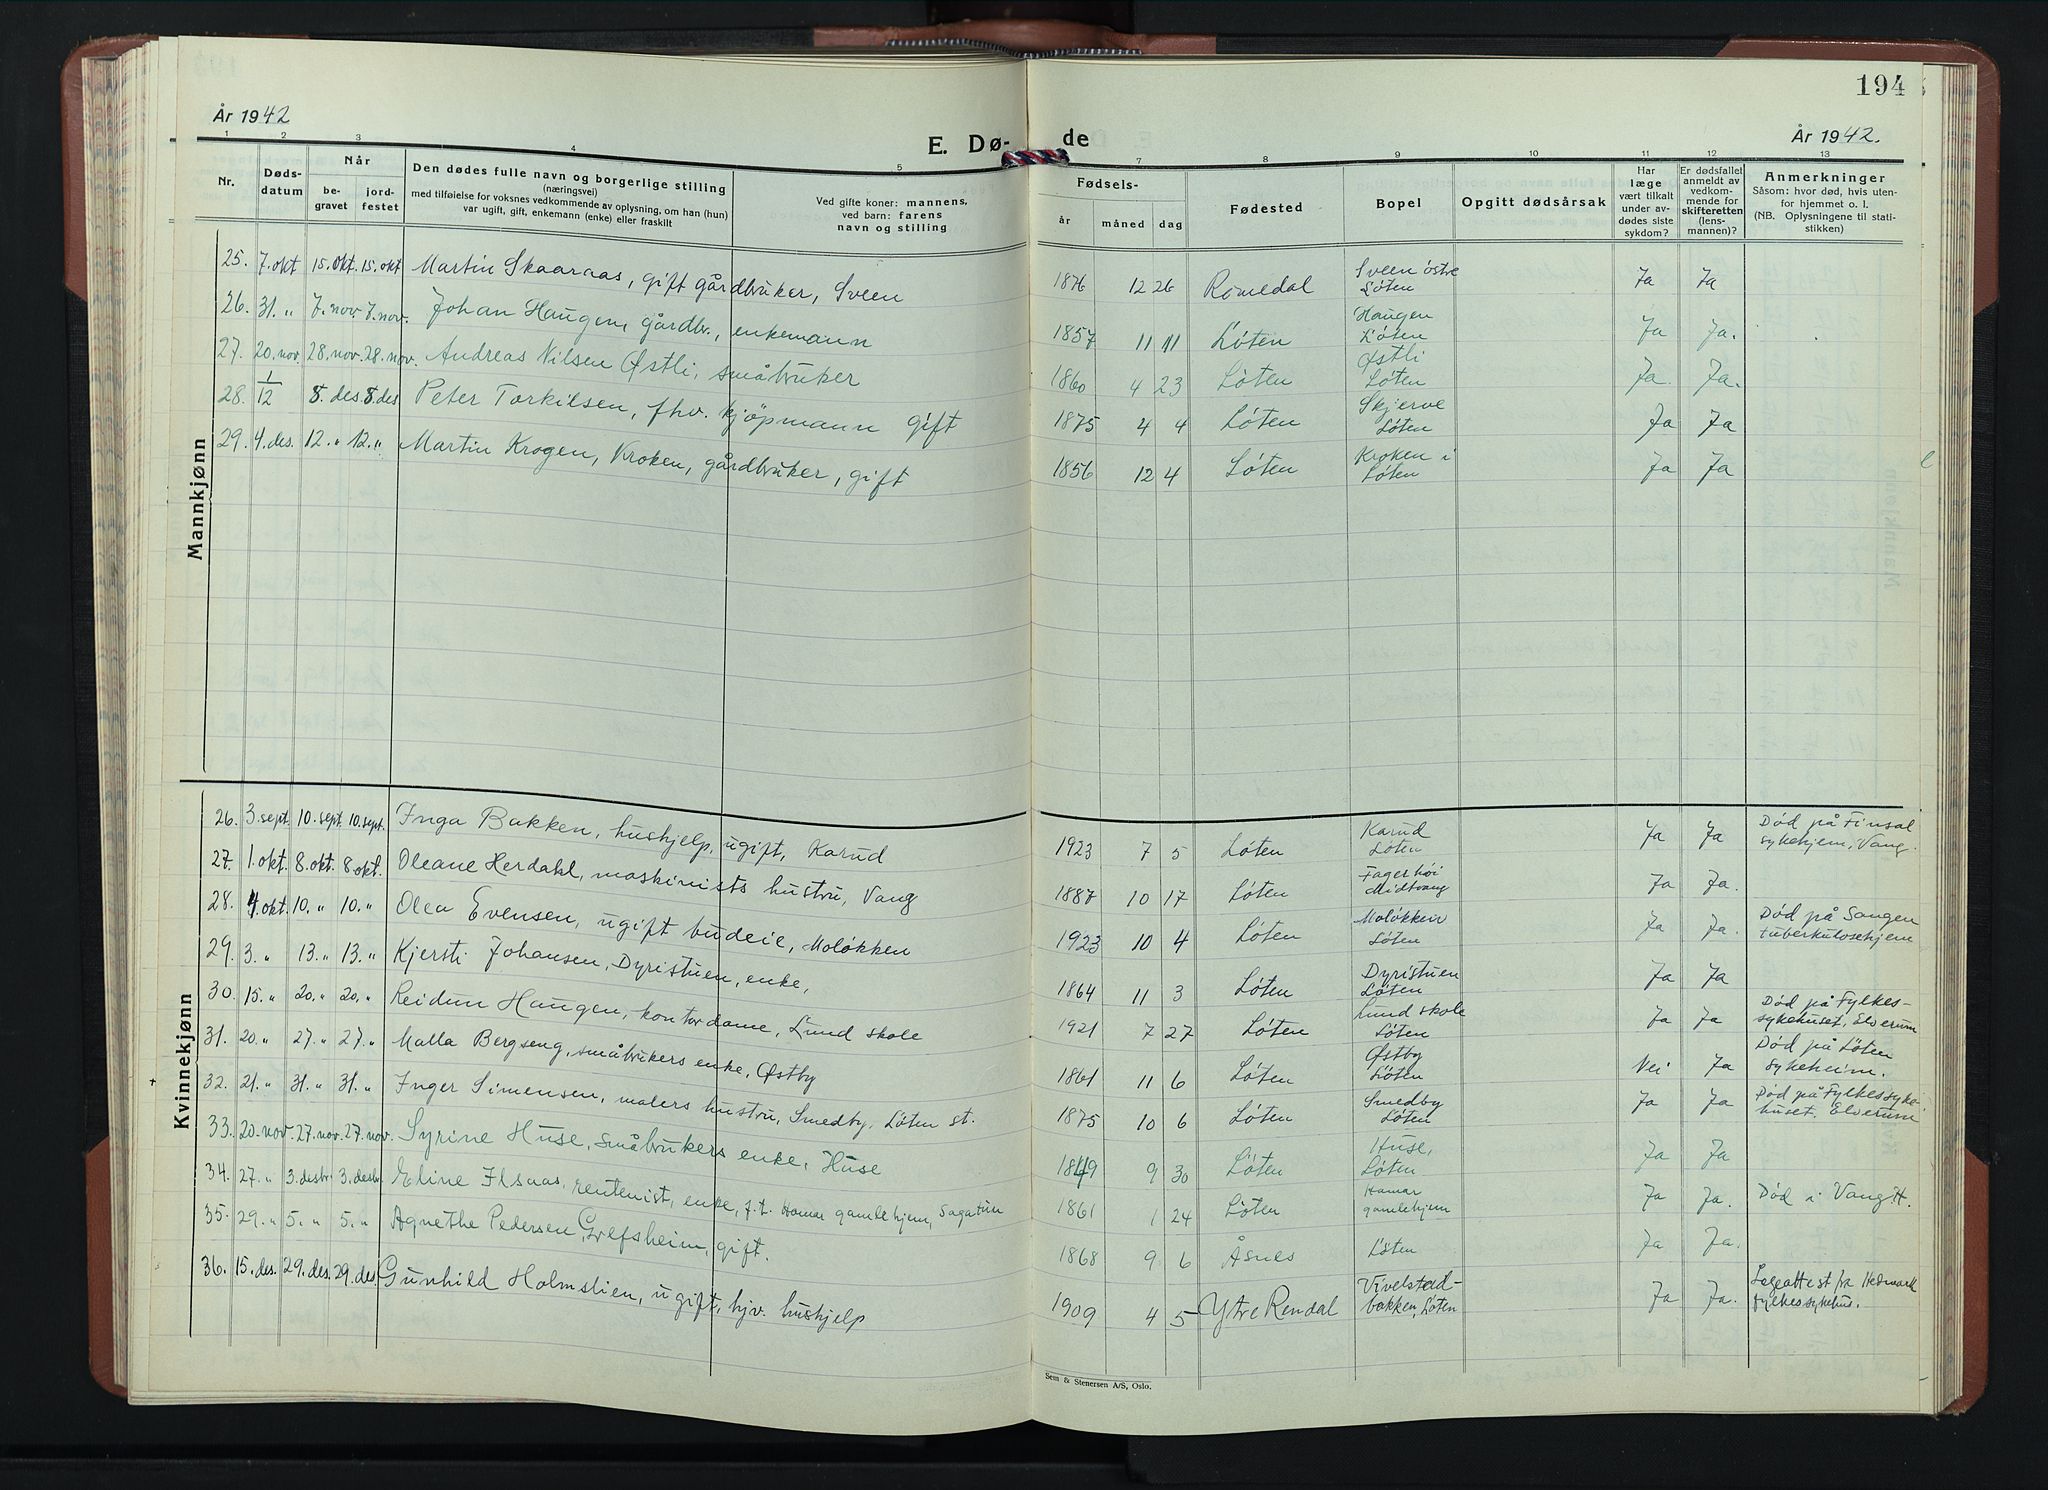 194
År 1942
E. Dø-
de
År 1942.
1 2 3 4 5 7 8 9 10 11 12 13
Nr.
Døds-
datum
Når
be-
gravet
jord-
festet
Den dødes fulle navn og borgerlige stilling
(næringsvei)
med tilføielse for voksnes vedkommende av oplysning, om han (hun)
var ugift, gift, enkemann (enke) eller fraskilt
Ved gifte koner: mannens,
ved barn: farens
navn og stilling
Fødsels-
år måned dag
Fødested
Bopel
Opgitt dødsårsak
Har
læge
vært tilkalt
under av-
dødes siste
sykdom?
Er dødsfallet
anmeldt av
vedkom-
mende for
skifteretten
(lens-
mannen)?
Anmerkninger
Såsom: hvor død, hvis uten-
for hjemmet o. l.
(NB. Oplysningene til stati-
stikken)
Mannkjønn
25. 7. okt 15. okt. 15. okt Martin Skaaraas, gift gårdbruker, Sveen 1876 12 26 Romedal Sveen østre Løten Ja Ja
26. 31. " 7. nov. 7. nov. Johan Haugen, gårdbr., enkemann 1857 11 11 Løten Haugen Løten Ja Ja.
27. 20. nov. 28. nov. 28. nov. Andreas Nilsen Østli, småbruker 1860 4 23 Løten Østli Løten Ja. Ja.
28. 1/12 8. des. 8. des Peter Torkilsen, fhv. kjøpmann gift 1875 4 4 Løten Skjerve Løten Ja Ja
29. 4. des. 12. " 12. " Martin Krogen, Kroken, gårdbruker, gift 1856 12 4 Løten Kroken i Løten Ja Ja
Kvinnekjønn
26. 3. sept. 10. sept. 10. sept. Inga Bakken, hushjelp, ugift, Karud 1923 7 5 Løten Karud Løten Ja Ja Død på Finsal sykehjem, Vang.
27. 1. okt. 8. okt. 8 okt. Oleane Herdahl, maskinists hustru, Vang 1887 10 17 Løten Fagerhøi Midtvang Ja Ja.
28. 4. okt. 10. " 10. " Olea Evensen, ugift budeie, Moløkken 1923 10 4 Løten Moløkken Løten Ja Ja. Død på Sangen tuberkulosehjem
29. 3. " 13. " 13. " Kjersti Johansen, Dyristuen, enke, 1864 11 3 Løten Dyristuen Løten Ja Ja
30. 15. " 20. " 20. " Reidun Haugen, kontordame, Lund skole 1921 7 27 Løten Lund skole Løten Ja Ja Død på Fylkes- sykehuset, Elverum
31. 20. " 27. " 27. " Malla Bergseng, småbrukers enke, Østby 1861 11 6 Løten Østby Løten Nei Ja Død på Løten sykeheim.
32. 21. " 31. " 31. " Inger Simensen, malers hustru, Smedby, Løten st. 1875 10 6 Løten Smedby Løten Ja Ja Død på Fylkessyke- huset, Elverum
33. 20. nov. 27. nov. 27. nov. Syrine Huse, småbrukers enke, Huse 1849 9 30 Løten Huse, Løten Ja Ja
34. 27. " 3. desbr. 3. desbr. Eline Ilsaas, rentenist, enke, f.t. Hamar gamlehjem, Sagatun 1861 1 24 Løten Hamar gamlehjem Ja Ja. Død i Vang H.
35. 29. " 5. " 5. " Agnethe Pedersen, Grefsheim, gift. 1868 9 6 Åsnes Løten Ja Ja.
36. 15. des. 29. des. 29. des. Gunhild Holmslien, ugift, hjv. hushjelp 1909 4 5 Ytre Rendal Vivelstad- bakken, Løten Ja Ja. Legeattest fra Hedmark fylkessykehus.
Sem & Stenersen A/S, Oslo.